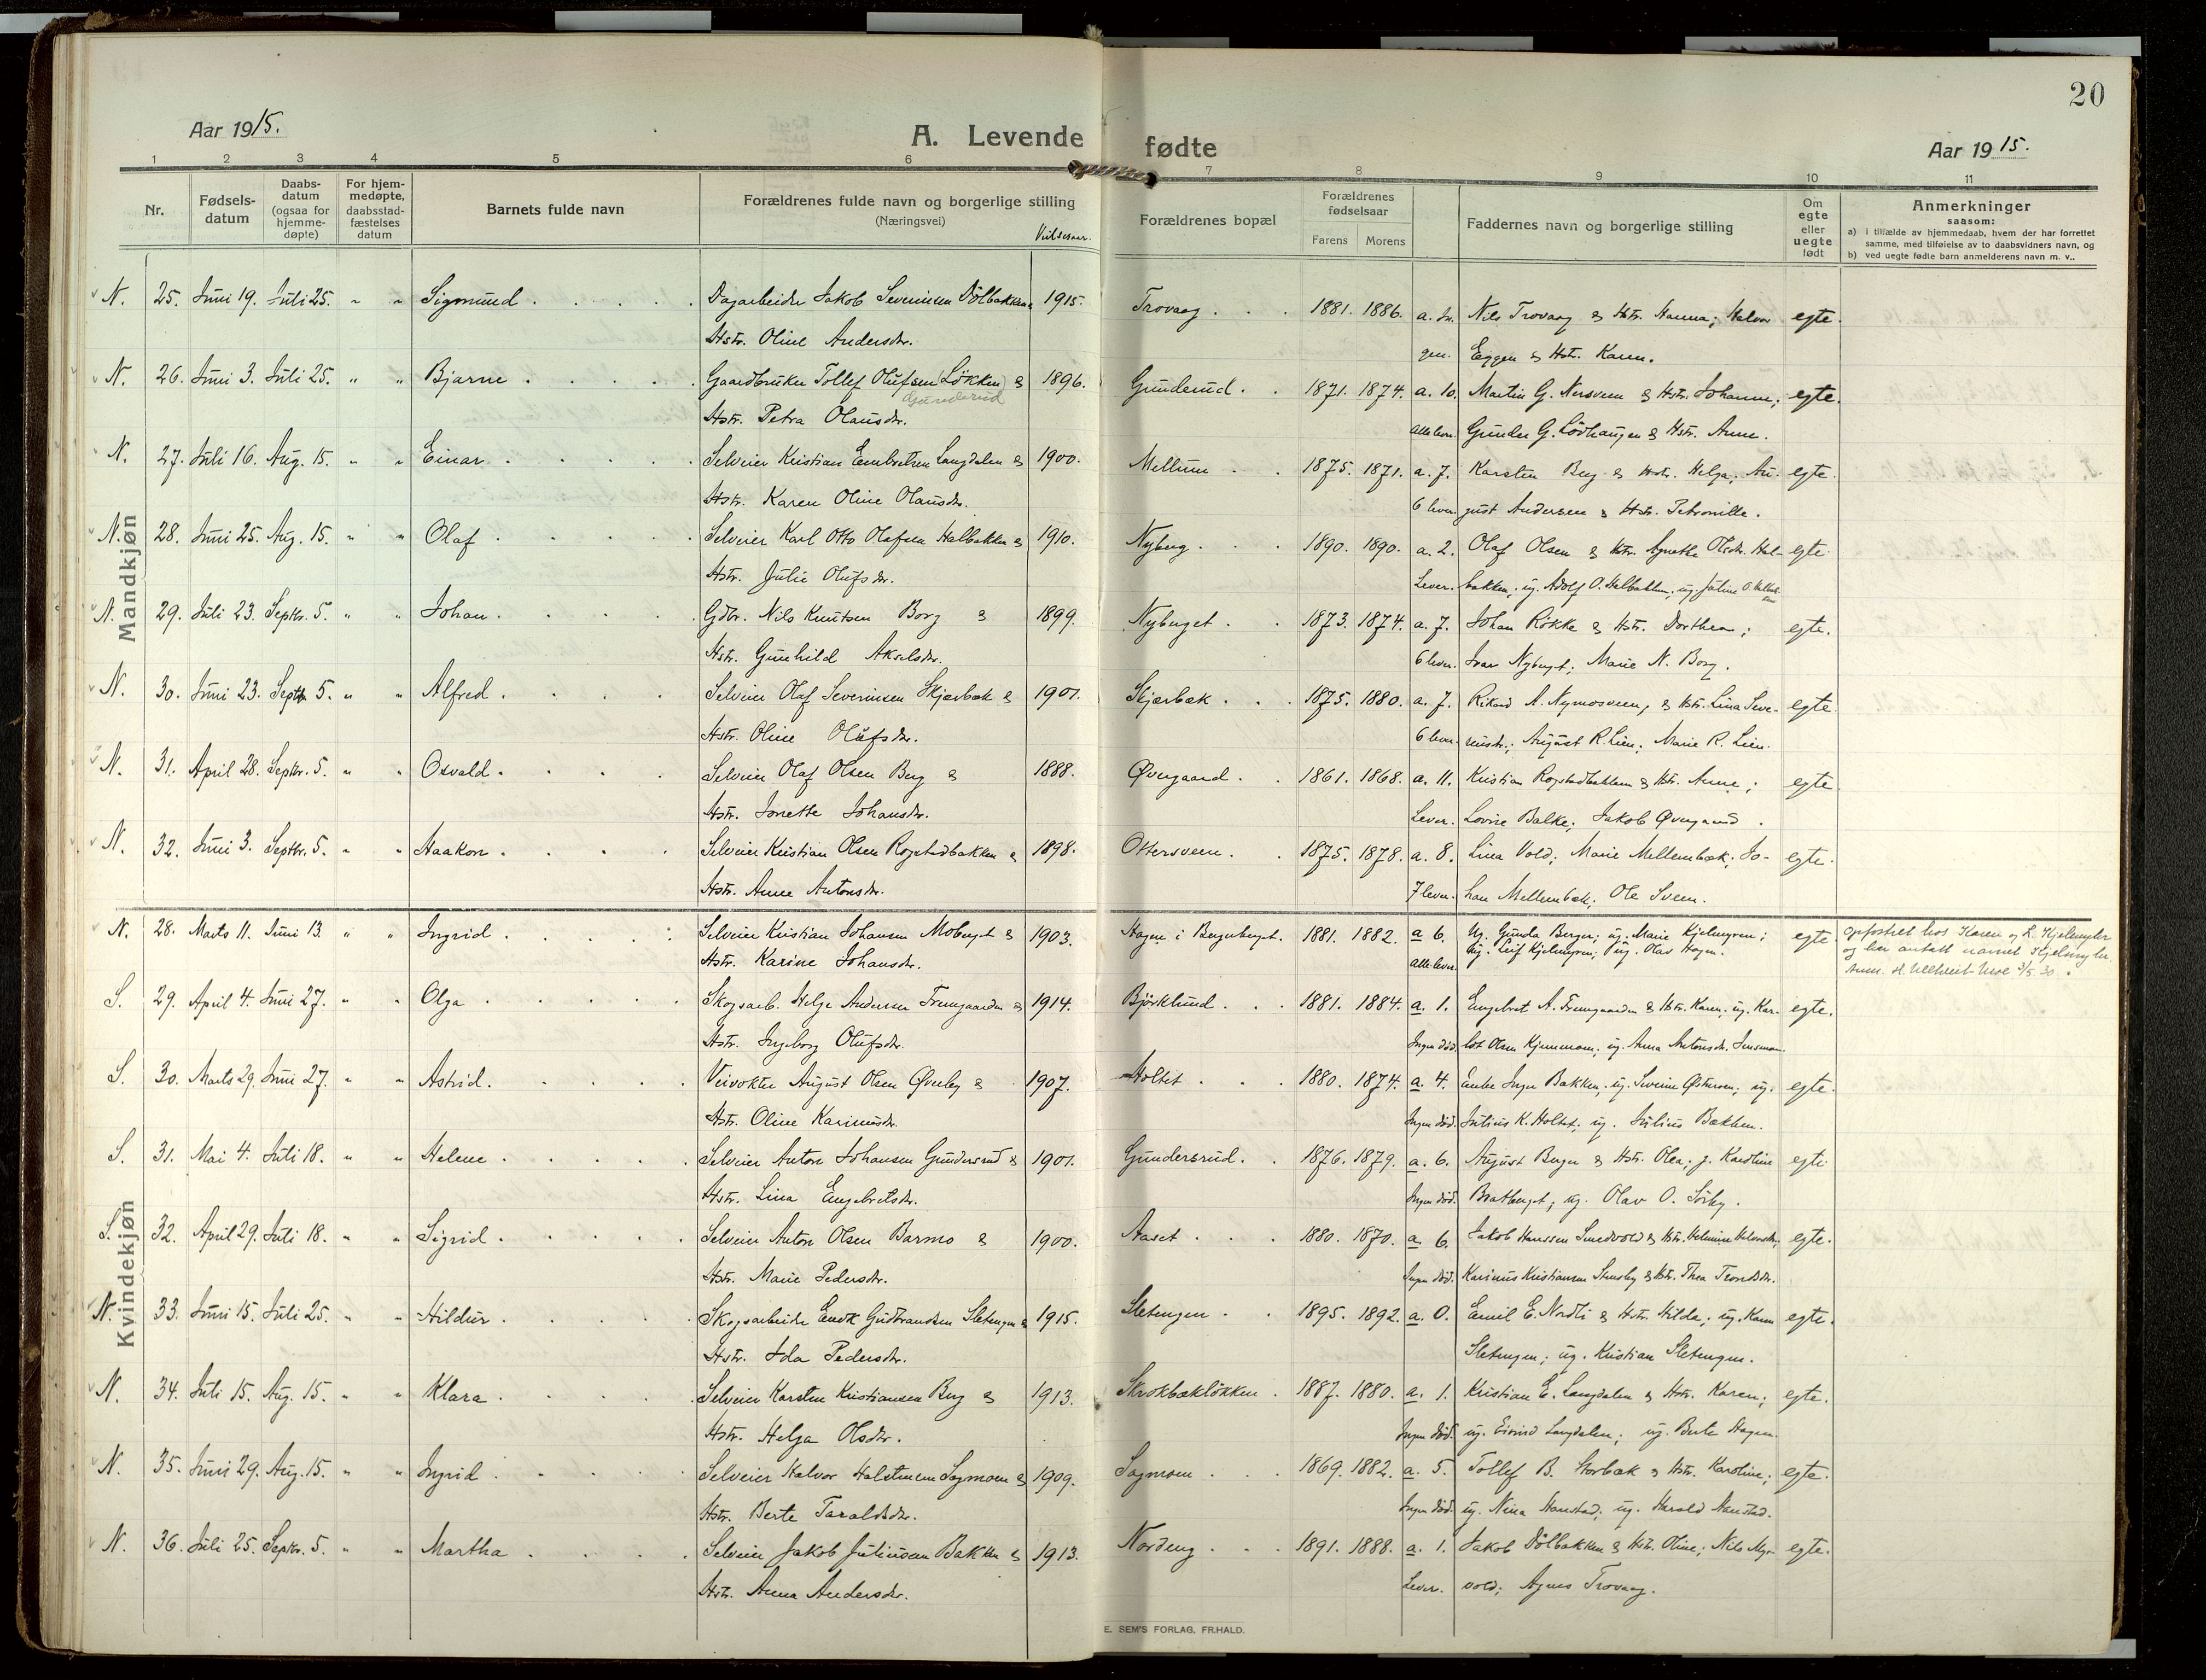 20
Aar 1915.
A. Levende fødte
Aar 1915.
1 2 3 4 5 6 7 8 9 10 11
Nr.
Fødsels-datum
Daabs-datum (ogsaa for hjemme-døpte)
For hjem-medøpte, daabsstad-fæstelses datum
Barnets fulde navn
Forældrenes fulde navn og borgerlige stilling
(Næringsvei)
Vielsesaar.
Forældrenes bopæl
Forældrenes fødselsaar
Farens Morens
Faddernes navn og borgerlige stilling
Om egte eller uegte født
Anmerkninger
saasom:
a) i tilfælde av hjemmedaab, hvem der har forrettet
samme, med tilføielse av to daabsvidners navn, og
b) ved uegte fødte barn anmelderens navn m. v..
Mandkjøn
N. 25. Juni 19. Juli 25. " " Sigmund Dagarbeider Jakob Severinsen Dölbakken 1915. Trovaag 1881. 1886. Nils Trovaag & Hstr. Hanna; Halvor egte.
Hstr. Oline Andersdtr. gen. Eggen & Hstr. Karen.
N. 26. Juni 3. Juli 25. " " Bjarne Gaardbruker Tollef Olufsen (Løkken) & 1896. Grinderud 1871. 1874. a. 10. Martin G. Nersveen & Hstr. Johanne; egte.
Hstr. Petra Olausdtr. alle lever. Gunder G. Lödhaugen & Hstr. Anne.
N. 27. Juli 16. Aug. 15. " " Einar Selveier Kristian Embretsen Langdalen & 1900. Mellum 1875. 1871. a. 7. Karsten Berg & Hstr. Helga; Au- egte.
Hstr. Karen Oline Olausdtr. 6 lever. gust Andersen & Hstr. Petronille.
N. 28. Juni 25. Aug. 15. " " Olaf Selveier Karl Otto Olafsen Halbakken & 1910. Nyberg 1890. 1890. a. 2. Olaf Olsen & Hstr. Agnethe Olsdtr. Hal- egte.
Hstr. Julie Olufsdtr. Lever. bakken, ug. Adolf O. Halbakken,
N. 29. Juli 23. Septbr. 5. " " Johan Gdbr. Nils Knutsen Borg & 1899. Nyberget 1873. 1874. a. 7. Johan Rökke & Hstr. Dorthea; egte.
Hstr. Gunhild Akselsdtr. 6 lever. Ivar Nyberget; Marie N. Borg.
N. 30. Juni 23. Septbr. 5. " " Alfred Selveier Olaf Severinsen Skjærbæk & 1901. Skjærbæk 1875. 1880. a. 7. Rikard A. Nymosveen, & Hstr. Lina Seve- egte.
Hstr. Oline Olufsdtr. 6 lever. rinsdtr.; August R. Lien; Marie R. Lien.
N. 31. April 28. Septbr. 5. " " Osvald Selveier Olaf Olsen Berg & 1888. Øvergaard 1861. 1868. a. 11. Kristian Rogstadbakken & Hstr. Anne; egte.
Hstr. Jonette Johansdtr. Lever. Lovise Balke; Jakob Øvergaard.
N. 32. Juni 3. Septbr. 5. " " Haakon Selveier Kristian Olsen Rogstadbakken & 1898. Ottersveen 1875. 1878. a. 8. Lina Vold; Marie Mellembæk; Jo- egte.
Hstr. Anne Antonsdtr. 7 lever. han Mellembæk; Ole Sveen.
Kvindekjøn
N. 28. Marts 11. Juni 13. " " Ingrid Selveier Kristian Johansen Moberget & 1903. Hagen i Bergeberget. 1881. 1882. a 6. Ug. Gunda Berger; ug. Marie Kjelmyren; egte. opfostret hos Karen og K. Hjelmyler
Hstr. Karine Johansdtr. alle lever. ug. Leif Kjelmyren; ug. Olav Hagen. og har antatt navnet Hjelmyler.
S. 29. April 4. Juni 27. " " Olga Skogsarb. Helge Andersen Fremgaarden & 1914. Björklund 1881. 1884. a. 1. Engebret A. Fremgaarden & Hstr. Karen; ug. Kar- egte.
Hstr. Ingeborg Olufsdtr. Ingen död. Olsen Kjernmoen; ug. Anna Antonsdtr.
S. 30. Marts 29. Juni 27. " " Astrid. Veivokter August Olsen Øverby & 1907. Holtet 1880. 1874. a. 4. Enke Inger Bakken; ug. Severine ug. egte.
Hstr. Oline Karinusdtr. Ingen död. Julius K. Holtet; ug. Julius Bakken.
S. 31. Mai 4. Juli 18. " " Helene Selveier Anton Johansen Gundersrud & 1901. Gundersrud. 1876. 1879. a. 6. August Berger & Hstr. Olea; Karoline egte.
Hstr. Lina Engebretsdtr. Ingen död. Bratberget; ug. Olav O. Sörby.
S. 32. April 29. Juli 18. " " Sigrid Selveier Anton Olsen Barmo & 1900. Aaset 1880. 1870. a 6. Jakob Hanssen Smedvold & Hstr. egte.
Hstr. Marie Pedersdtr. Ingen död. Karinus Kristiansen & Hstr. Thea Trondsdtr.
N. 33. Juni 15. Juli 25. " " Hildur Skogsarbeider Gudbrandsen Sletengen & 1915. Sletengen 1895. 1892. a. 0. Emil E. Nordli & Hstr. Hilda; ug. Karen egte.
Hstr. Ida Pedersdtr. Sletengen; ug. Kristian Sletengen.
N. 34. Juli 15. Aug. 15. " " Klara Selveier Karsten Kristiansen Berg & 1913. Skrokbækløkken 1887. 1880. a. 1. Kristian E. Langdalen & Hstr. Karen; egte.
Hstr. Helga Olsdtr. Ingen död. ug. Eivind Langdalen; ug. Berte Hagen.
N. 35. Juni 29. Aug. 15. " " Ingrid Selveier Halvor Halstensen Sagmoen & 1909. Sagmoen 1869. 1882. a. 5. Tollef B. Storbæk & Hstr. Karoline; egte.
Hstr. Berte Taraldsdtr. Ingen död. ug. Nina Hanstad; ug. Harald Hanstad.
N. 36. Juli 25. Septbr. 5. " " Martha Selveier Jakob Juliussen Bakken & 1913. Nordeng 1891. 1888. a. 1. Jakob Dölbakken & Hstr. Oline; Nils Myr- egte.
Hstr. Anna Andersdtr. Lever. vold; Agnes Trovaag.
E. SEM'S FORLAG, FR.HALD.